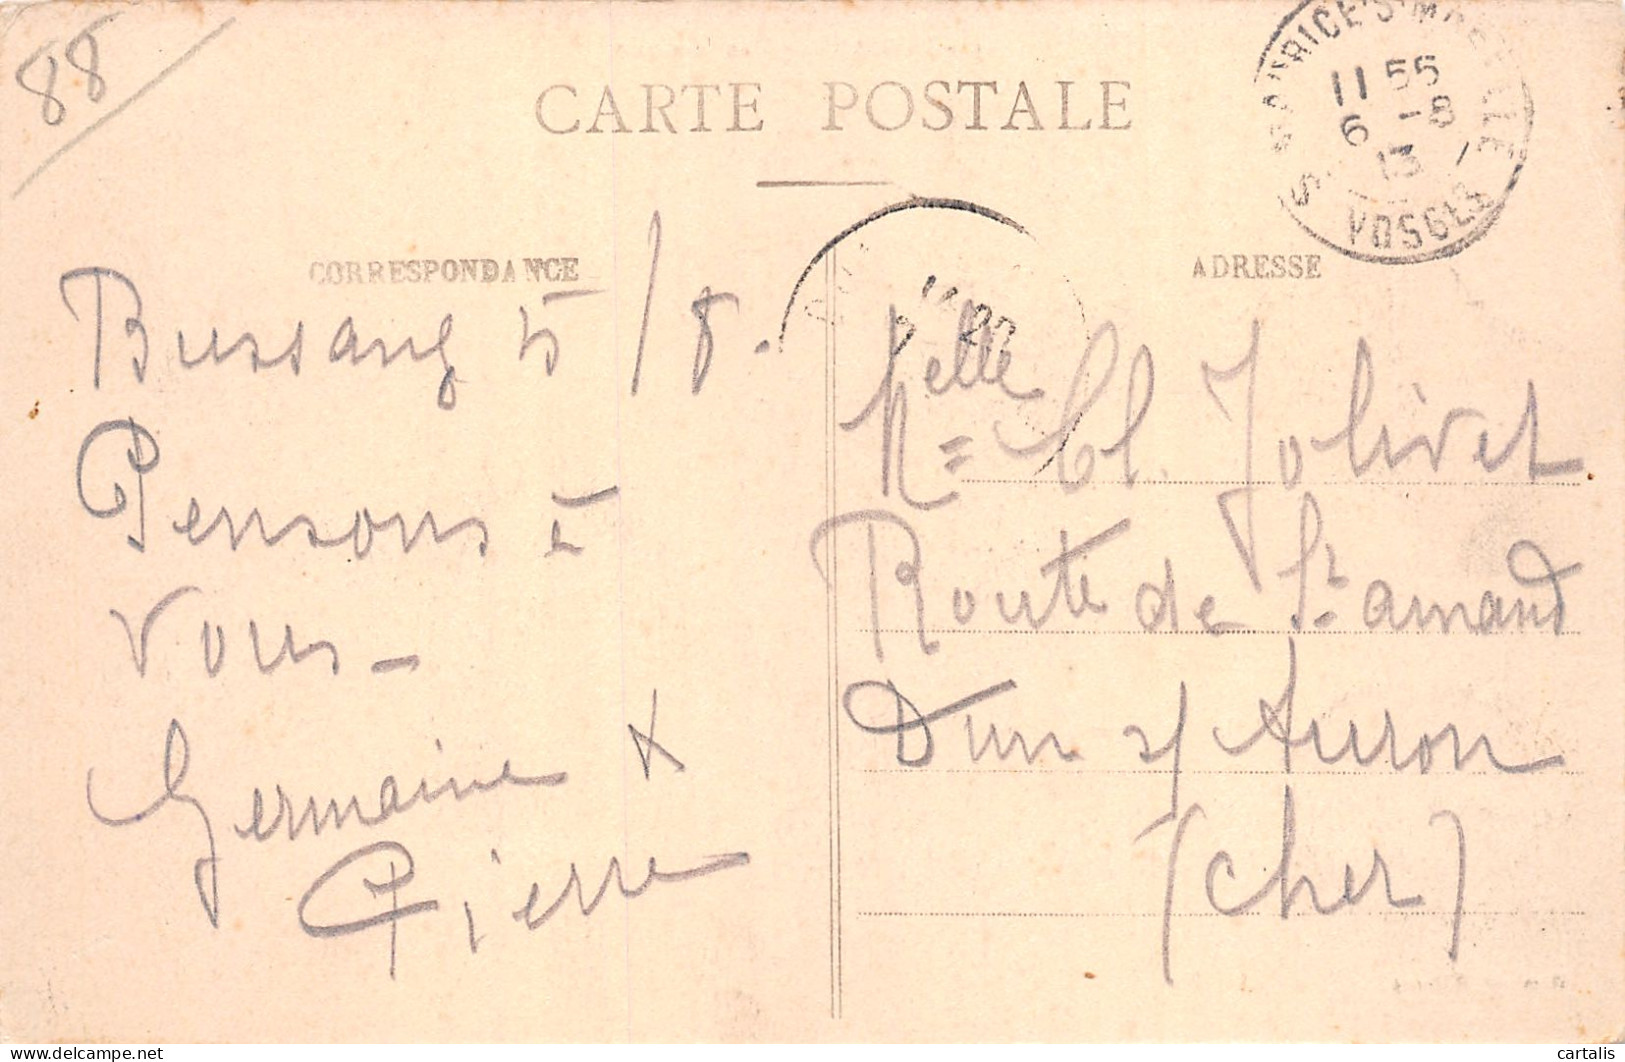 88
CARTE POSTALE
ST MAURICE S MOSELLE
11 55
6 -8
13
VOSGES
CORRESPONDANCE
Bussang 5/8.
Pensons à
vous -
Germaine &
Pierre
ADRESSE
Melle Cl. Jolivet
Route de St. amand
Dun s/ Auron
(Cher)
cartalis